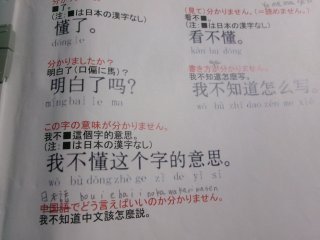 ■了。
(注:■は日本の漢字なし)
懂了。
dǒng le
(見て)分かりません。(=読めません。)
看不■。
(注:■は日本の漢字なし)
看不懂。
kàn bù dǒng
分かりましたか?
明白了(口偏に馬)?
明白了吗?
míng bai le ma
書き方が分かりません。
我不知道怎麼寫。
我不知道怎么写。
wǒ bù zhī dao zěn me xiě
この字の意味が分かりません。
我不■這個字的意思。
(注:■は日本の漢字なし)
我不懂这个字的意思。
wǒ bù dǒng zhè ge zì de yì si
日本語
中国語でどう言えばいいのか分かりません。
我不知道中文該怎麼說。